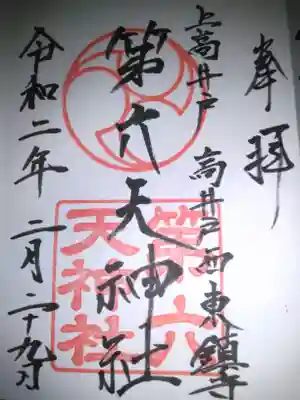 奉拝
上高井戸 高井戸西東鎮守
第六天神社
令和二年 二月二十九日
第六
天神社